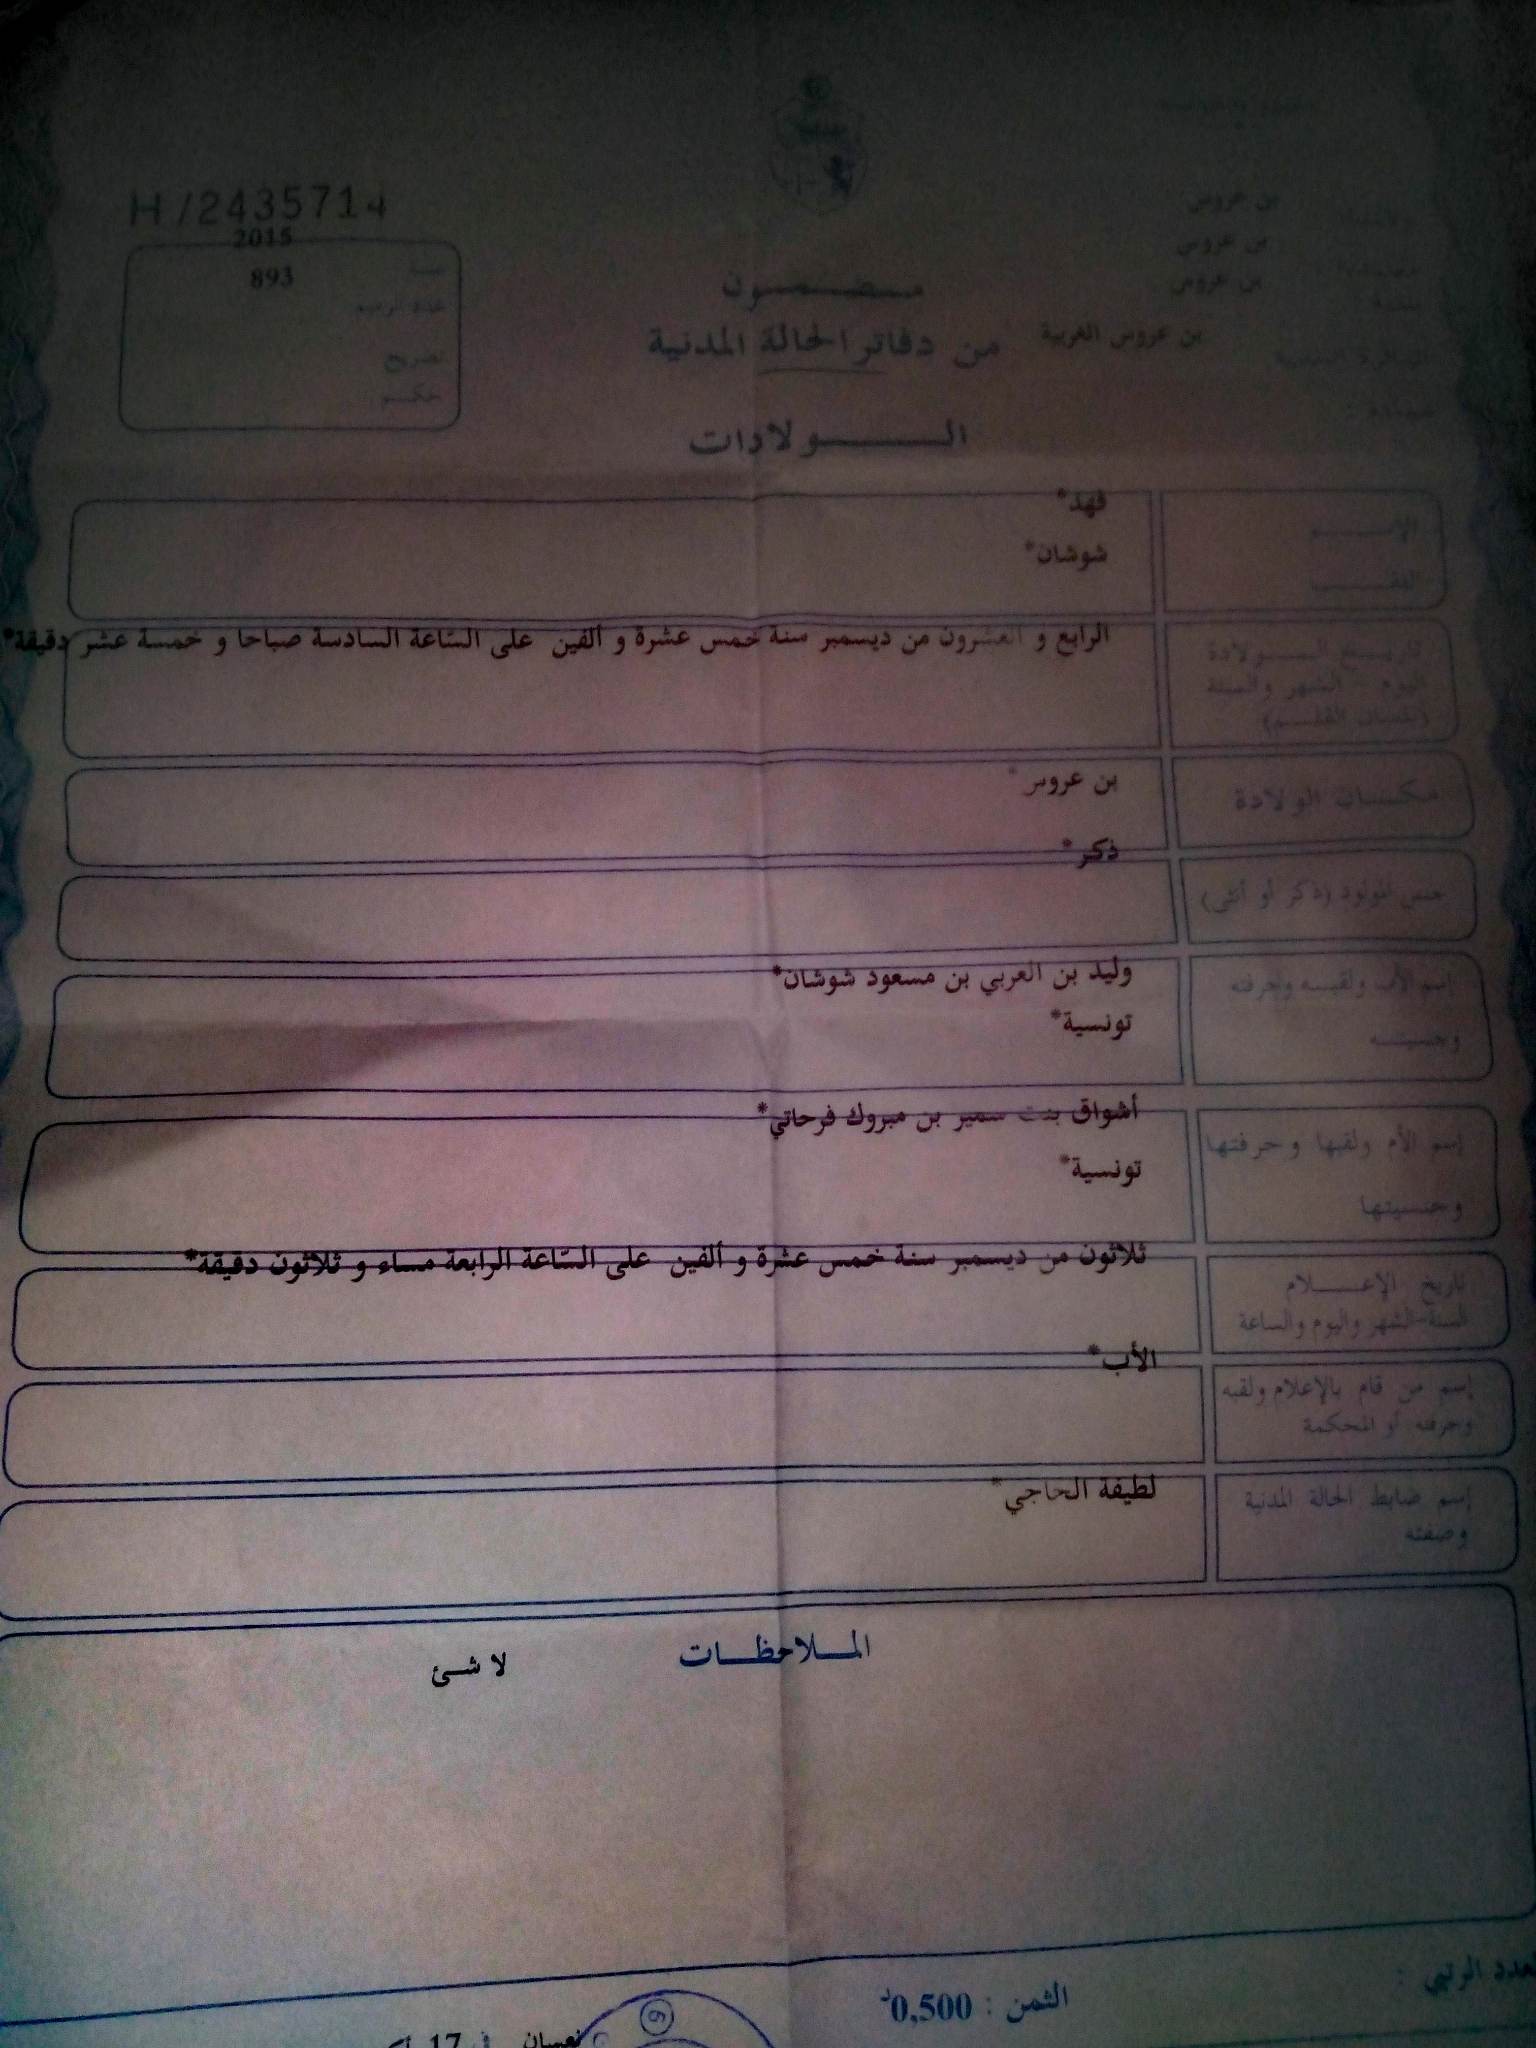 H/2435714
2015
893
بن عروس
بن عروس
بن عروس
بن عروس الغربية
مضمون
من دفاتر الحالة المدنية
الولادات
الإسم
فهد*
اللقب
شوشان*
تاريخ الولادة
اليوم - الشهر والسنة
(بلسان القلم)
الرابع و العشرون من ديسمبر سنة خمس عشرة و ألفين على السّاعة السادسة صباحا و خمسة عشر دقيقة*
مكان الولادة
بن عروس*
جنس المولود (ذكر أو أنثى)
ذكر*
إسم الأب ولقبه وحرفته
وجنسيته
وليد بن العربي بن مسعود شوشان*
تونسية*
إسم الأم ولقبها وحرفتها
وجنسيتها
أشواق بنت سمير بن مبروك فرحاتي*
تونسية*
تاريخ الإعلام
السنة-الشهر واليوم والساعة
ثلاثون من ديسمبر سنة خمس عشرة و ألفين على السّاعة الرابعة مساء و ثلاثون دقيقة*
إسم من قام بالإعلام ولقبه
وحرفته أو المحكمة
الأب*
إسم ضابط الحالة المدنية
وصفته
لطيفة الحاجي*
الملاحظات
لا شئ
العدد الرتبي :
الثمن : 0,500د
نعسان في 17